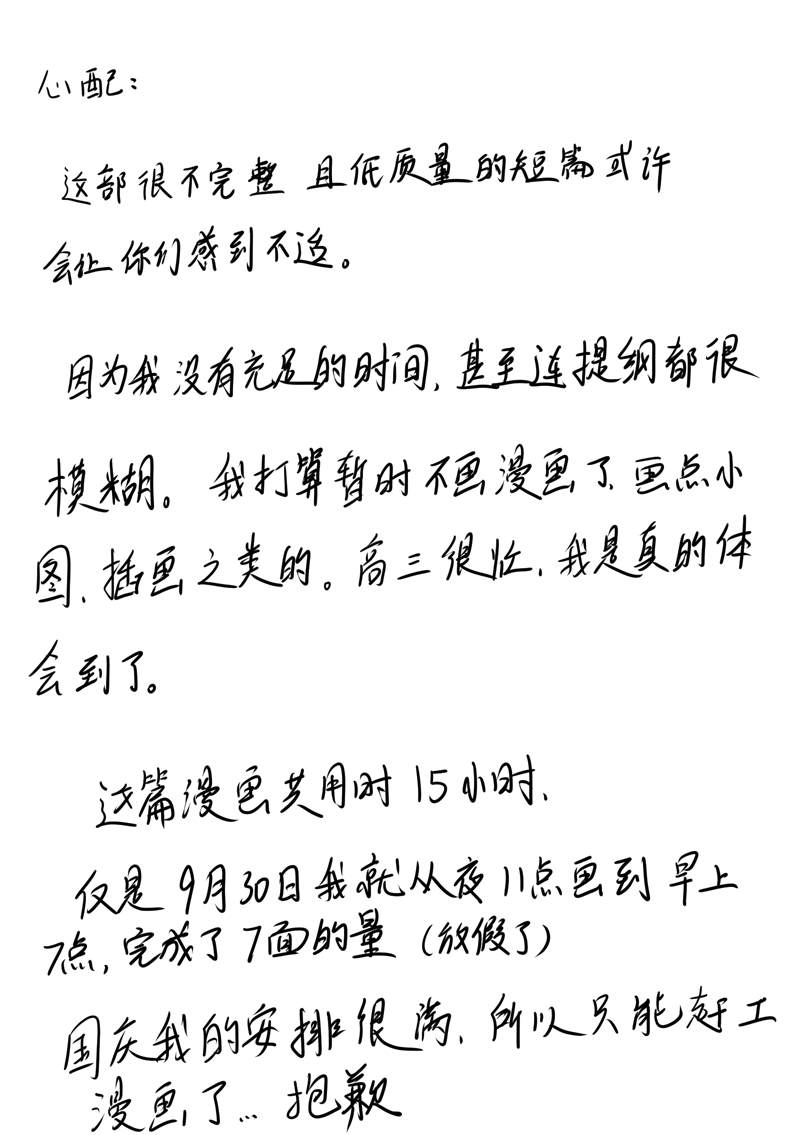 心配：
这部很不完整 且低质量的短篇或许
会让你们感到不适。
因为我没有充足的时间，甚至连提纲都很
模糊。我打算暂时不画漫画了、画点小
图、插画之类的。高三很忙、我是真的体
会到了。
这篇漫画共用时15小时、
仅是9月30日我就从夜11点画到早上
7点，完成了7面的量（放假了）
国庆我的安排很满、所以只能赶工
漫画了... 抱歉